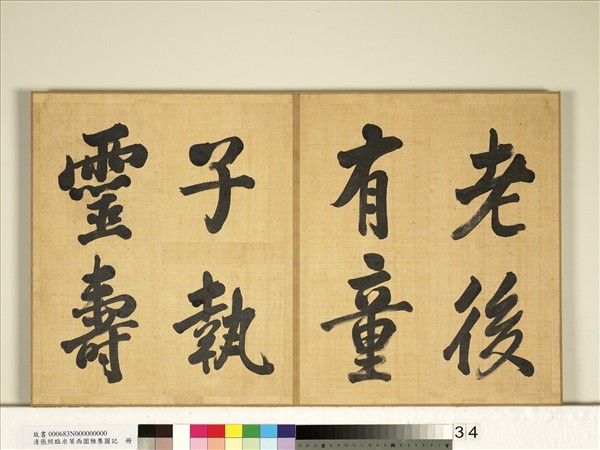 老後
有童
子執
靈壽
故書000683N000000000
清張照臨米芾西園雅集圖記 冊
34